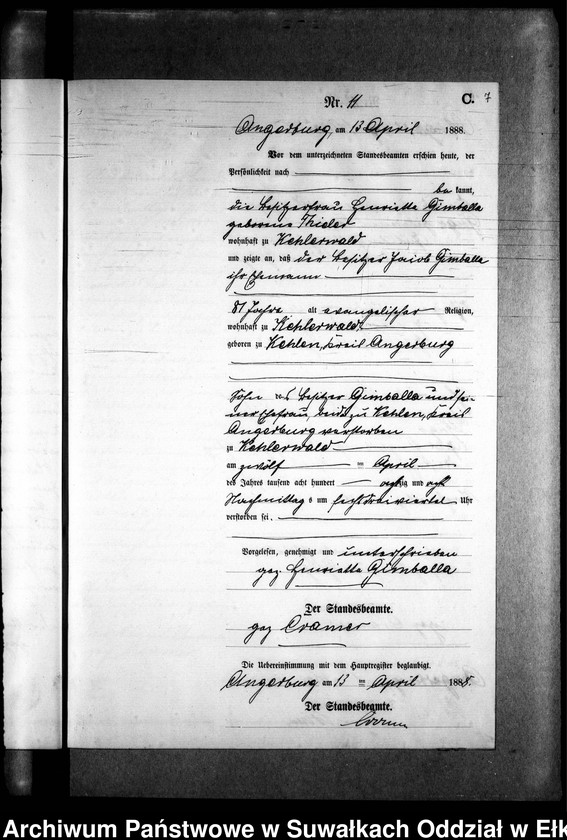 Nr. 11
C. 7
Angerburg, am 13 April 1888.
Vor dem unterzeichneten Standesbeamten erschien heute, der
Persönlichkeit nach
be kannt,
die Besitzerfrau Henriette Gimballa
geborene Thieler
wohnhaft zu Kehlerwald
und zeigte an, daß der Besitzer Jacob Gimballa
ihr Ehemann
81 Jahre alt evangelischer Religion,
wohnhaft zu Kehlerwald
geboren zu Kehlen, Kreis Angerburg
Sohn des Besitzer Gimballa und sei-
ner Ehefrau, beide zu Kehlen, Kreis
Angerburg verstorben
zu Kehlerwald
am zwölf ten April
des Jahres tausend acht hundert achtzig und acht
Nachmittags um sechs dreiviertel Uhr
verstorben sei.
Vorgelesen, genehmigt und unterschrieben
gez. Henriette Gimballa
Der Standesbeamte.
gez Cramer
Die Uebereinstimmung mit dem Hauptregister beglaubigt.
Angerburg am 13 ten April 1888.
Der Standesbeamte.
Archiwum Państwowe w Suwałkach Oddział w Ełk